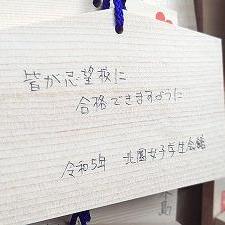 皆が志望校に
合格できますように
令和5年 北園女子学生会館